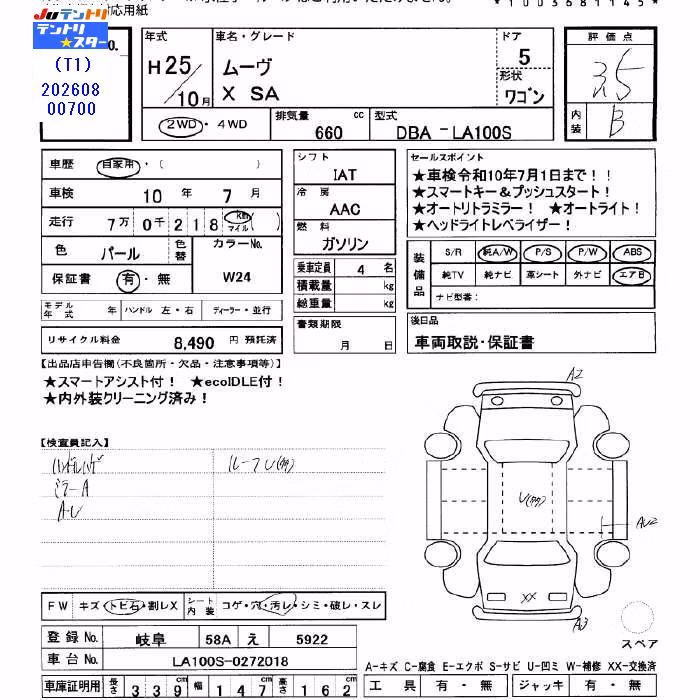 応用紙
*1003681145*
JUテントリ
テントリ
★スター
(T1)
202608
00700
No.
年式
H25/10月
車名・グレード
ムーヴ
X SA
ドア
5
形状
ワゴン
評価点
3.5
内装
B
2WD・4WD
排気量 660 cc
型式 DBA-LA100S
車歴 自家用・( )
車検 10 年 7 月
走行 7万 0千 218 km マイル( )
色 パール 色替 カラーNo. W24
保証書 有・無
モデル年式 年 ハンドル 左・右 ディーラー・並行
リサイクル料金 8,490 円 預託済
シフト
IAT
冷房
AAC
燃料
ガソリン
乗車定員 4 名
積載量 kg
総重量 kg
書類期限
月 日
セールスポイント
★車検令和10年7月1日まで!!
★スマートキー&プッシュスタート!
★オートリトラミラー! ★オートライト!
★ヘッドライトレベライザー!
装備品
S/R 純A/W P/S P/W ABS
純TV 純ナビ 革シート 外ナビ エアB
ナビ型番:
後日品
車両取説・保証書
【出品店申告欄(不良箇所・欠品・注意事項等)】
★スマートアシスト付! ★ecoIDLE付!
★内外装クリーニング済み!
【検査員記入】
ミラーA
A・U
ルーフU
A2
U
AU2
XX
A3
スペア
FW キズ・トビ石・割レX シート内装 コゲ・穴・汚レ・シミ・破レ・スレ
登録No. 岐阜 58A え 5922
車台No. LA100S-0272018
車庫証明用 長さ 339 幅 147 高さ 162
A-キズ C-腐食 E-エクボ S-サビ U-凹ミ W-補修 XX-交換済
工具 有・無 ジャッキ 有・無